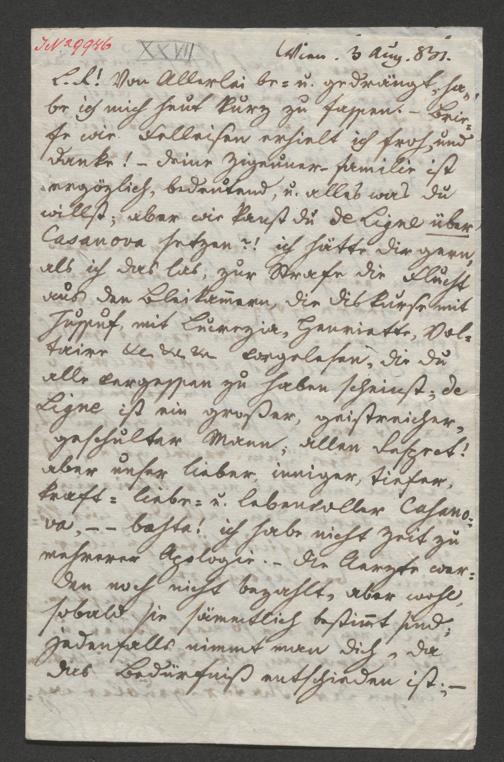 I.N. 29946
XXVII
Wien. 3 Aug. 831.
L. F.! Von Allerlei be= u. gedrängt, ha=
be ich mich heut kurz zu fassen. – Brie=
fe wie Felleisen erhielt ich froh, und
danke! – deine Zigeuner-familie ist
ergözlich, bedeutend, u. alles was du
willst; aber wie kanst du de Ligne über
Casanova setzen?! ich hätte dir gern,
als ich das las, zur Strafe die Flucht
aus den Bleikam̅ern, die diskurse mit
Jussuf, mit Lucrezia, Henriette, Vol=
taire &c &c &c vorgelesen, die du
alle vergessen zu haben scheinst; de
Ligne ist ein großer, geistreicher,
geschulter Mann; allen Respect!
aber unser lieber, inniger, tiefer,
kraft= liebe= u. lebenvoller Casano=
va, – – basta! ich habe nicht Zeit zu
mehrerer Apologie. – die Aerzte wer=
den noch nicht bezahlt, aber wohl,
sobald sie säm̅tlich bestim̅t sind;
jedenfalls nimmt man dich, da
das Bedürfniß entschieden ist; –